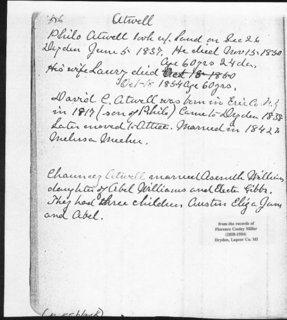 Atwell
Philo Atwell 1wh of Land on Sec 26
Dryden June 5- 1837. He died Nov 13-1850
Age 60 yrs 24 da.
His wife Laury died Oct 13-1860
Oct-8 1854 Age 60 yrs.
David C. Atwell was born in Erie Co N.Y
in 1817 (son of Philo) Came to Dryden 1838
Later moved to Attica. Married in 1842
Melissa
Chauncy Atwell married Asenath Williams,
daughter of Abel Williams and Gibbs.
They had three children Austin Eliza Jane
and Abel.
from the records of
Florence Cooley Miller
Dryden, Lapeer Co. MI